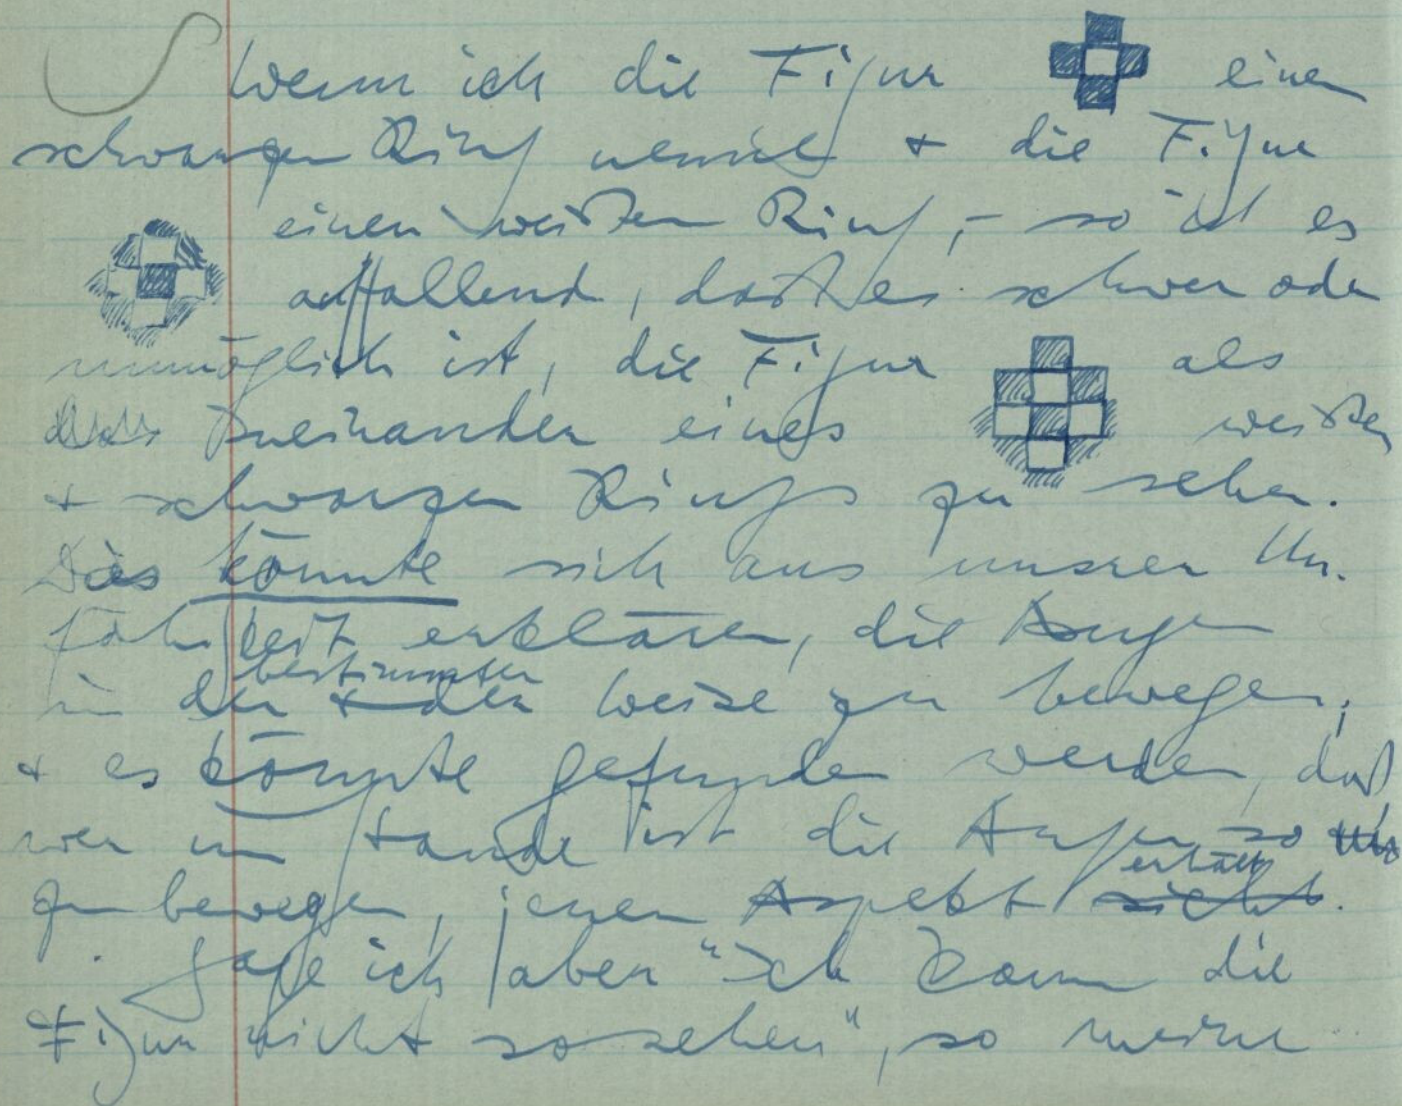 Wenn ich die Figur einen
schwarzen Ring nenne & die Figur
einen weißen Ring, – so ist es
auffallend, daß es schwer oder
unmöglich ist, die Figur als
das Ineinander eines weißen
& schwarzen Rings zu sehen.
Dies könnte sich aus unserer Un-
fähigkeit erklären, die Augen
bestimmter
in der & der Weise zu bewegen;
& es könnte gefunden werden, daß,
wer im Stande ist die Augen so
erhält
zu bewegen, jenen Aspekt sieht.
Sage ich aber "Ich kann die
Figur nicht so sehen", so meine